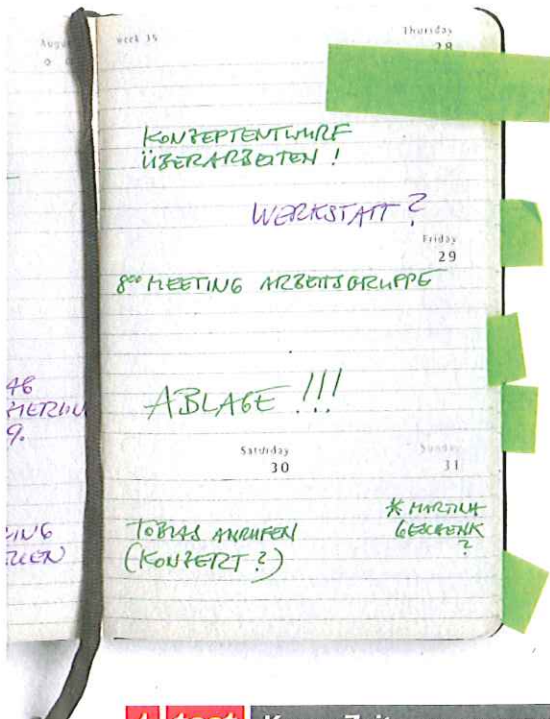 week 35
Thursday
28
KONZEPTENTWURF
ÜBERARBEITEN !
WERKSTATT ?
Friday
29
8⁰⁰ MEETING ARBEITSGRUPPE
ABLAGE !!!
Saturday
30
Sunday
31
TOBIAS ANRUFEN
(KONZERT ?)
* MARTINA
GESCHENK
?
test